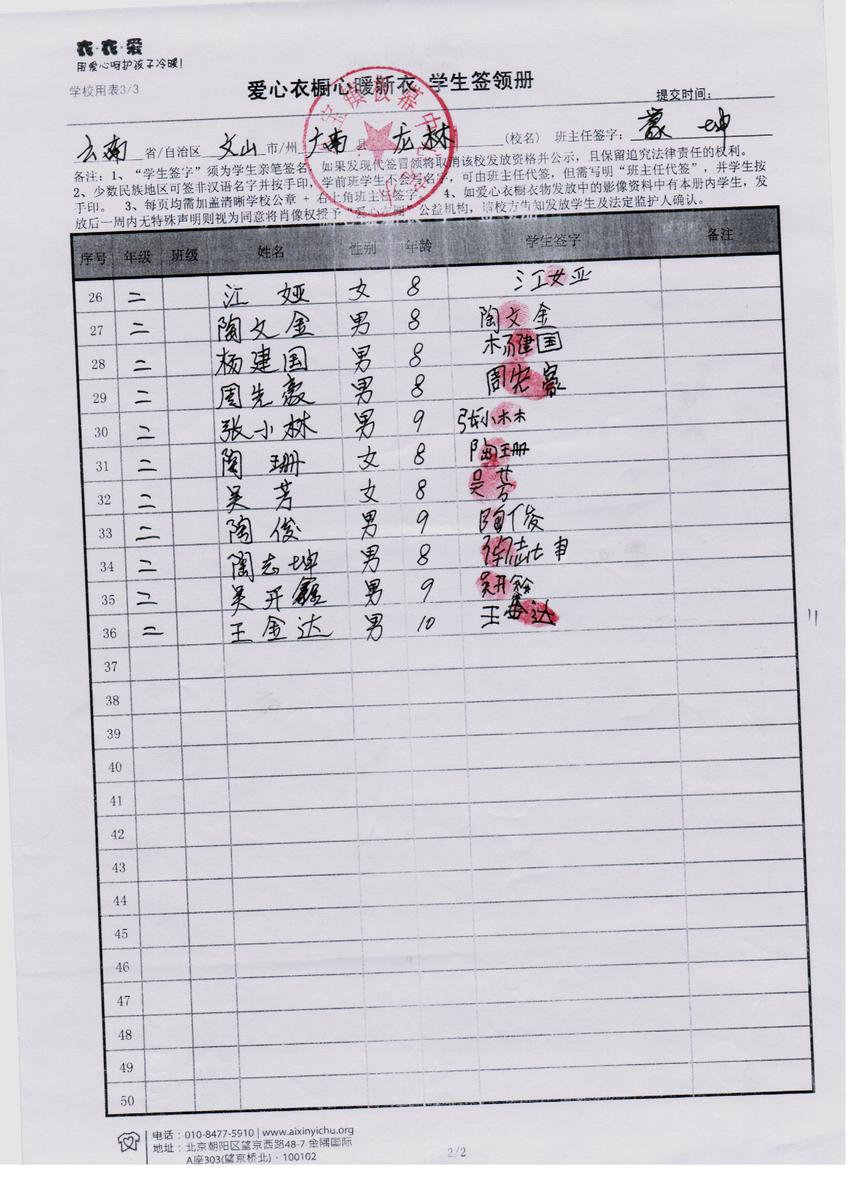 衣·衣·爱
用爱心呵护孩子冷暖!
学校用表3/3
爱心衣橱心暖新衣 学生签领册
提交时间:
云南 省/自治区 文山 市/州 广南 县 龙林 (校名) 班主任签字: 蒙 坤
备注:1、“学生签字”须为学生亲笔签名,如果发现代签冒领将取消该校发放资格并公示,且保留追究法律责任的权利。
2、少数民族地区可签非汉语名字并按手印,学前班学生不会写名字,可由班主任代签,但需写明“班主任代签”,并学生按
手印。 3、每页均需加盖清晰学校公章 + 右上角班主任签字。 4、如爱心衣橱衣物发放中的影像资料中有本册内学生,发
放后一周内无特殊声明则视为同意将肖像权授予“爱心衣橱”公益机构,请校方告知发放学生及法定监护人确认。
序号 年级 班级 姓名 性别 年龄 学生签字 备注
26 二 江 娅 女 8 江女亚
27 二 陶文金 男 8 陶文金
28 二 杨建国 男 8 杨建国
29 二 周先豪 男 8 周先豪
30 二 张小林 男 9 张小林
31 二 陶 珊 女 8 陶珊
32 二 吴 芳 女 8 吴芳
33 二 陶 俊 男 9 陶俊
34 二 陶志坤 男 8
35 二 吴开鑫 男 9 吴开
36 二 王金达 男 10 王金达
37
38
39
40
41
42
43
44
45
46
47
48
49
50
电话:010-8477-5910 | www.aixinyichu.org
地址:北京朝阳区望京西路48-7 金隅国际
A座303(望京桥北)·100102
2/2